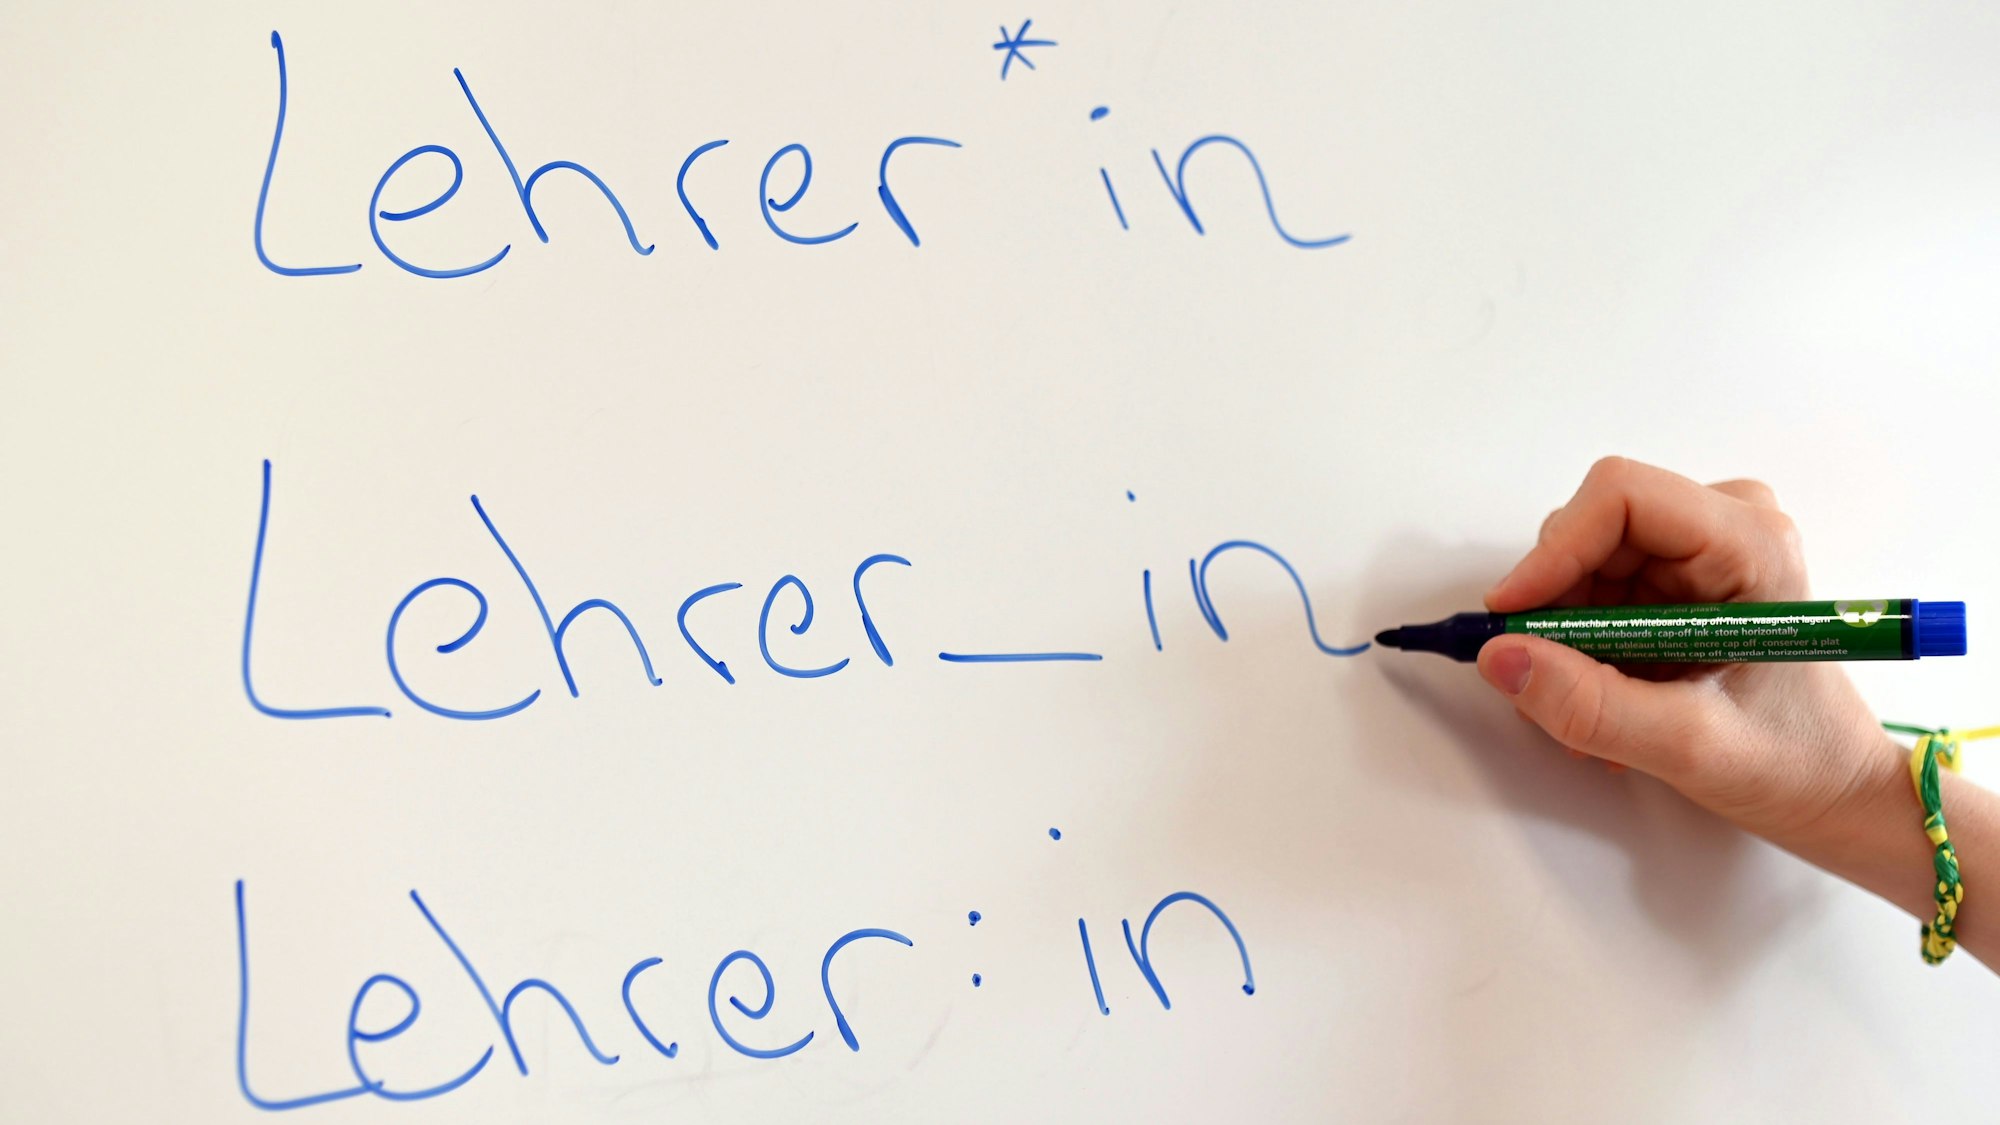 Lehrer*in
Lehrer_in
trocken abwischbar von Whiteboards · Cap off-Tinte · waagrecht lagern
dry wipe from whiteboards · cap-off ink · store horizontally
à sec sur tableaux blancs · encre cap off · conserver à plat
blancas · tinta cap off · guardar horizontalmente
Lehrer:in